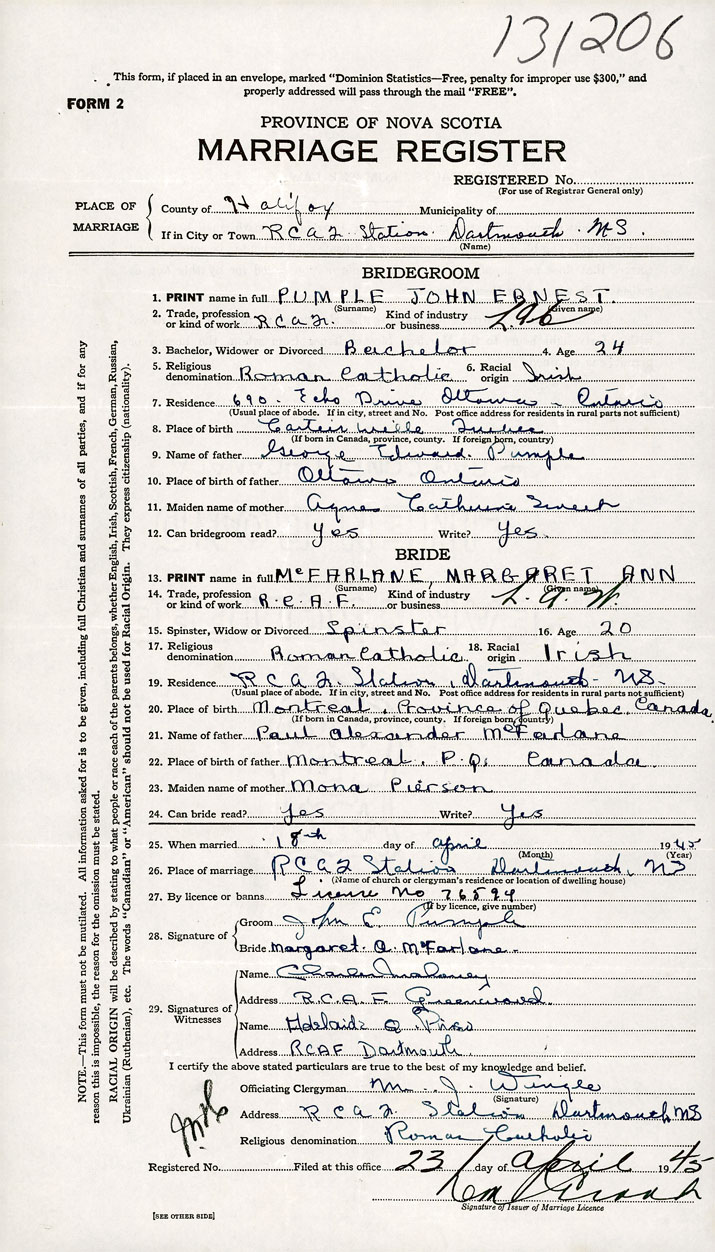 131206
This form, if placed in an envelope, marked "Dominion Statistics—Free, penalty for improper use $300," and
properly addressed will pass through the mail "FREE".
FORM 2
PROVINCE OF NOVA SCOTIA
MARRIAGE REGISTER
REGISTERED No.
(For use of Registrar General only)
PLACE OF MARRIAGE
County of Halifax Municipality of
If in City or Town R C A F Station Dartmouth N S.
(Name)
BRIDEGROOM
1. PRINT name in full PUMPLE JOHN ERNEST.
(Surname) (Given name)
2. Trade, profession or kind of work R C A F. Kind of industry or business
3. Bachelor, Widower or Divorced Bachelor 4. Age 24
5. Religious denomination Roman Catholic 6. Racial origin Irish
7. Residence 690 Echo Drive Ottawa - Ontario
(Usual place of abode. If in city, street and No. Post office address for residents in rural parts not sufficient)
8. Place of birth Cartierville Quebec
(If born in Canada, province, county. If foreign born, country)
9. Name of father George Edward Pumple
10. Place of birth of father Ottawa Ontario
11. Maiden name of mother Agnes Catherine Sweet
12. Can bridegroom read? Yes Write? Yes.
BRIDE
13. PRINT name in full McFARLANE, MARGARET ANN
(Surname) (Given name)
14. Trade, profession or kind of work R.C.A.F. Kind of industry or business
15. Spinster, Widow or Divorced Spinster 16. Age 20
17. Religious denomination Roman Catholic 18. Racial origin Irish
19. Residence R C A F. Station, Dartmouth - NS.
(Usual place of abode. If in city, street and No. Post office address for residents in rural parts not sufficient)
20. Place of birth Montreal, Province of Quebec, Canada,
(If born in Canada, province, county. If foreign born, country)
21. Name of father Paul Alexander McFarlane
22. Place of birth of father Montreal, P.Q. Canada.
23. Maiden name of mother Mona Pierson
24. Can bride read? Yes Write? Yes
25. When married 18th day of April 1945
(Month) (Year)
26. Place of marriage R C A F Station Dartmouth, NS
(Name of church or clergyman's residence or location of dwelling house)
27. By licence or banns License No 76594
(If by licence, give number)
28. Signature of Groom John E. Pumple
Bride Margaret A. McFarlane.
29. Signatures of Witnesses
Name Charles Maloney
Address R.C.A.F. Greenwood.
Name Adelaide
Address RCAF Dartmouth.
I certify the above stated particulars are true to the best of my knowledge and belief.
Officiating Clergyman J. Wingle
(Signature)
Address R C A F. Station Dartmouth NS
Religious denomination Roman Catholic
Registered No. Filed at this office 23 day of April 1945
Signature of Issuer of Marriage Licence
[SEE OTHER SIDE]
NOTE.—This form must not be mutilated. All information asked for is to be given, including full Christian and surnames of all parties, and if for any
reason this is impossible, the reason for the omission must be stated.
RACIAL ORIGIN will be described by stating to what people or race each of the parents belongs, whether English, Irish, Scottish, French, German, Russian,
Ukrainian (Ruthenian), etc. The words "Canadian" or "American" should not be used for Racial Origin. They express citizenship (nationality).